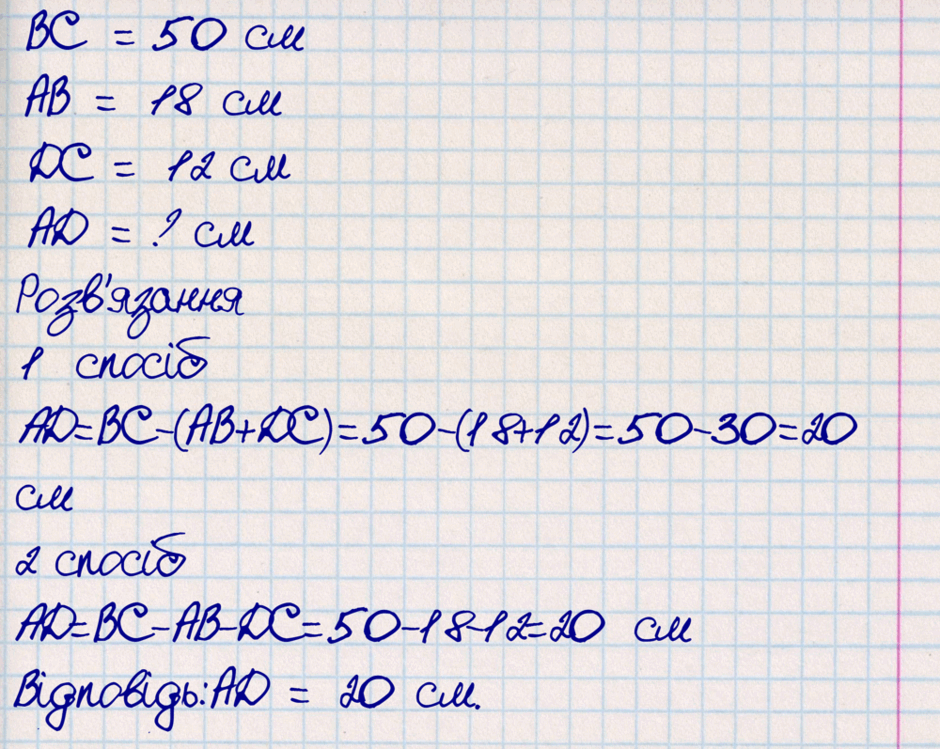 BC = 50 см
AB = 18 см
DC = 12 см
AD = ? см
Розв'язання
1 спосіб
AD=BC-(AB+DC)=50-(18+12)=50-30=20
см
2 спосіб
AD=BC-AB-DC=50-18-12=20 см
Відповідь:AD = 20 см.